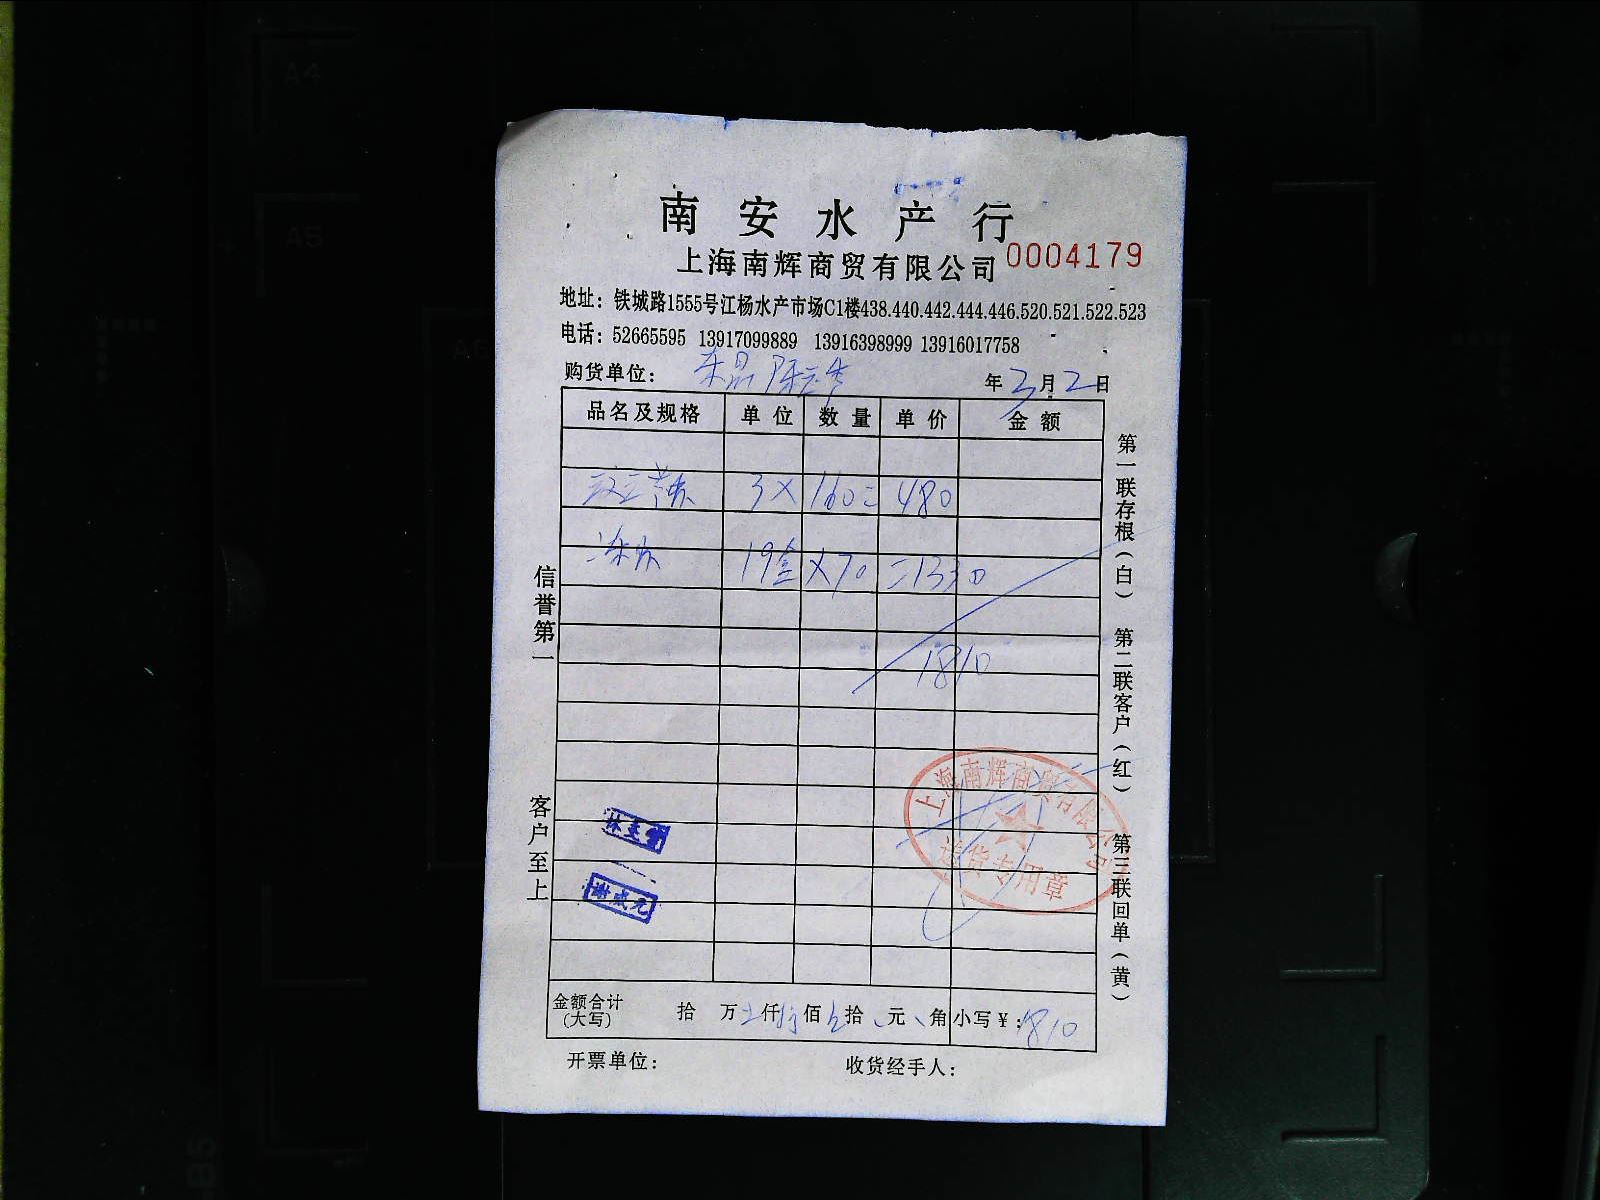 南安水产行
上海南辉商贸有限公司 0004179
地址：铁城路1555号江杨水产市场C1楼438.440.442.444.446.520.521.522.523
电话：52665595 13917099889 13916398999 13916017758
购货单位： 年3月2日
品名及规格 单位 数量 单价 金额
3 X 160 = 480
19盒 X 70 = 1330
1810
信誉第一
客户至上
第一联存根（白） 第二联客户（红） 第三联回单（黄）
上海南辉商贸有限公司
送货专用章
金额合计（大写） 拾 万 仟 佰 拾 元 角 小写¥：1810
开票单位： 收货经手人：
A4
A5
A6
B5